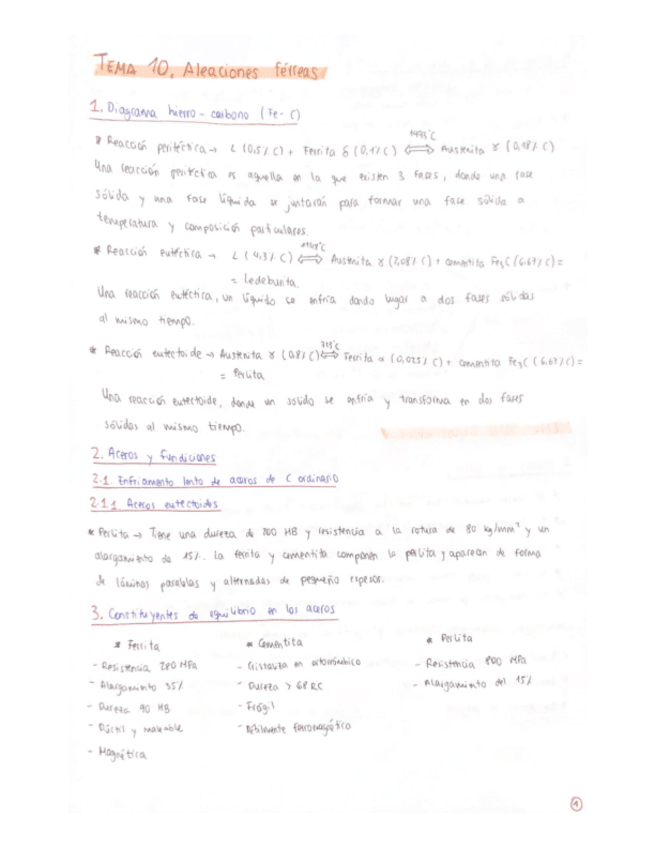 TEMA 10. Aleaciones férreas
1. Diagrama hierro-carbono (Fe-C)
* Reacción peritéctica → L (0,5% C) + Ferrita δ (0,1% C) ⟺ Austenita γ (0,18% C)
Una reacción peritéctica es aquella en la que existen 3 fases, donde una fase
sólida y una fase líquida se juntarán para formar una fase sólida a
temperatura y composición particulares.
* Reacción eutéctica → L (4,3% C) ⟺ Austenita γ (2,08% C) + cementita Fe3C (6,67% C) =
= Ledeburita.
Una reacción eutéctica, un líquido se enfría dando lugar a dos fases sólidas
al mismo tiempo.
* Reacción eutectoide → Austenita γ (0,8% C) ⟺ Ferrita α (0,025% C) + cementita Fe3C (6,67% C) =
= Perlita
Una reacción eutectoide, donde un sólido se enfría y transforma en dos fases
sólidas al mismo tiempo.
2. Aceros y fundiciones
2.1. Enfriamiento lento de aceros de C ordinario
2.1.1 Aceros eutectoides
* Perlita → Tiene una dureza de 200 HB y resistencia a la rotura de 80 kg/mm² y un
alargamiento de 15%. La ferrita y cementita componen la perlita y aparecen de forma
de láminas paralelas y alternadas de pequeño espesor.
3. Constituyentes de equilibrio en los aceros
* Ferrita
- Resistencia 280 MPa
- Alargamiento 35%
- Dureza 90 HB
- Dúctil y maleable
- Magnética
* Cementita
- Cristaliza en ortorrómbico
- Dureza > 68 RC
- Frágil
- Débilmente ferromagnético
* Perlita
- Resistencia 800 MPa
- Alargamiento del 15%
1